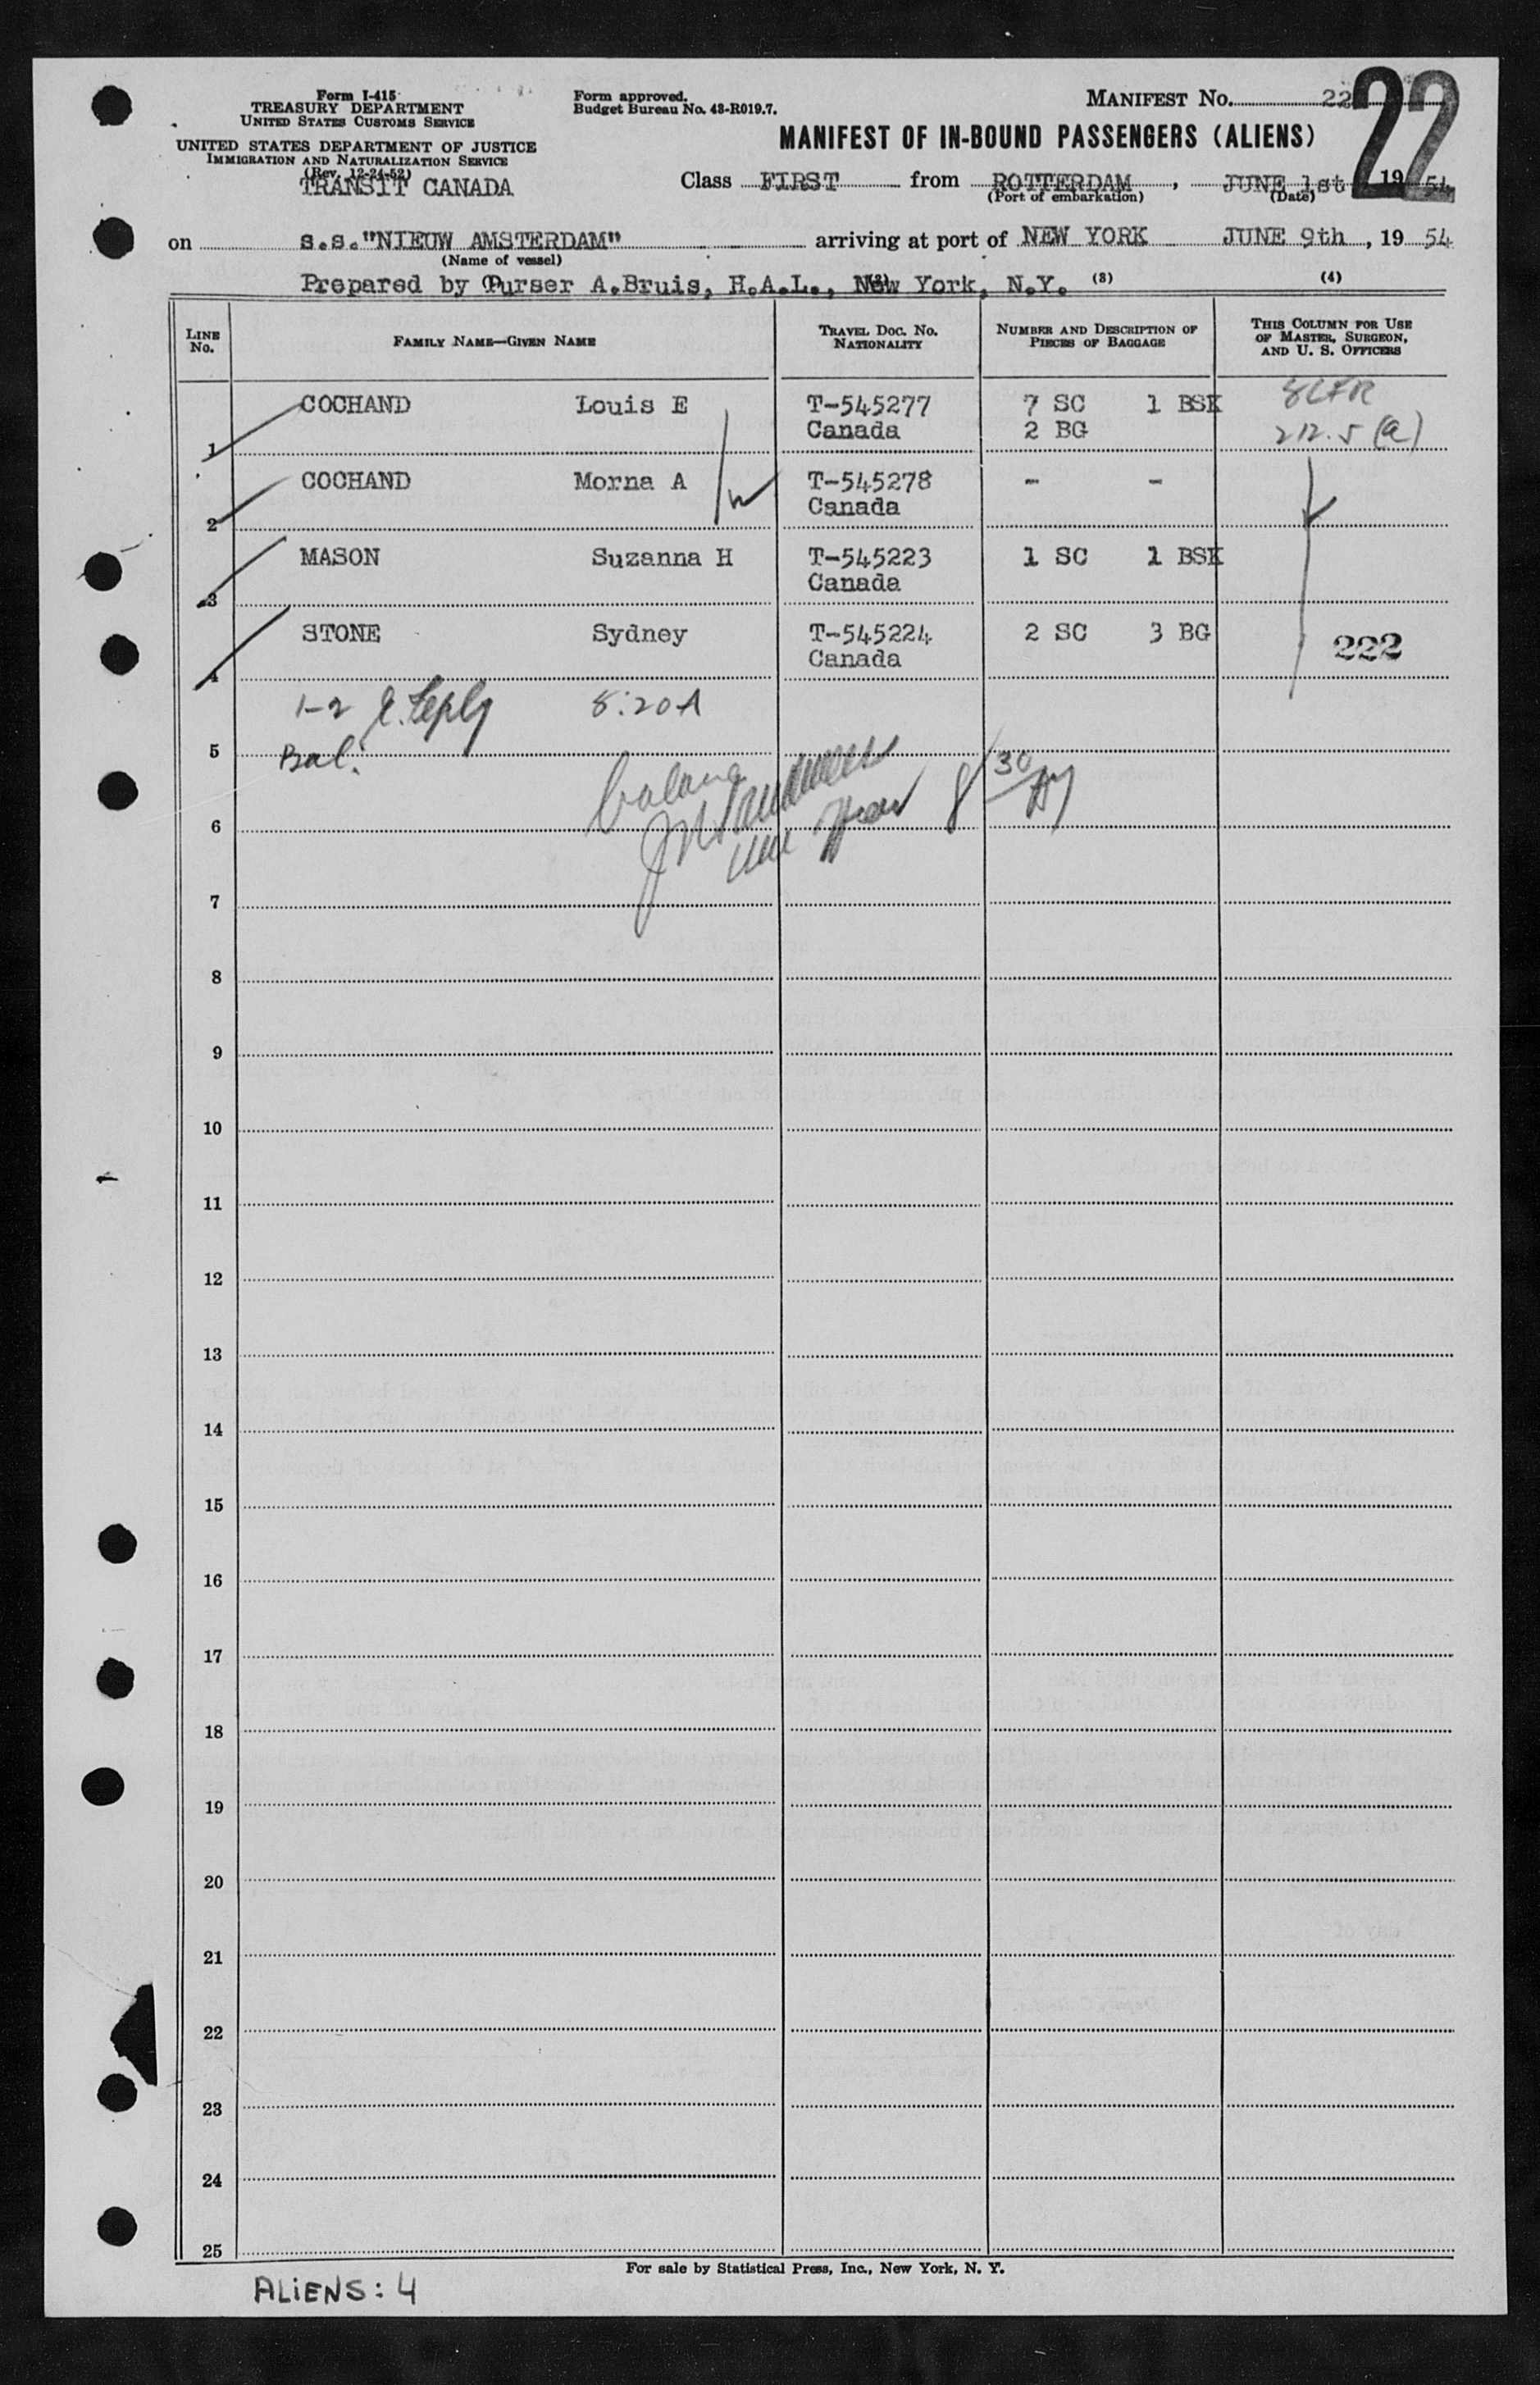 Form I-415
TREASURY DEPARTMENT
UNITED STATES CUSTOMS SERVICE
UNITED STATES DEPARTMENT OF JUSTICE
IMMIGRATION AND NATURALIZATION SERVICE
(Rev. 12-24-52)
TRANSIT CANADA
Form approved.
Budget Bureau No. 43-R019.7.
MANIFEST NO. 22
22
MANIFEST OF IN-BOUND PASSENGERS (ALIENS)
Class FIRST from ROTTERDAM, JUNE 1st, 1954
(Port of embarkation) (Date)
on s.s."NIEUW AMSTERDAM" arriving at port of NEW YORK JUNE 9th, 19 54
(Name of vessel)
Prepared by Purser A.Bruis, H.A.L., New York, N.Y. (3) (4)
LINE NO. FAMILY NAME—GIVEN NAME TRAVEL DOC. NO. NATIONALITY NUMBER AND DESCRIPTION OF PIECES OF BAGGAGE THIS COLUMN FOR USE OF MASTER, SURGEON, AND U. S. OFFICERS
COCHAND Louis E T-545277 7 SC 1 BSK 8CFR
1 Canada 2 BG 212.5 (a)
COCHAND Morna A T-545278 - -
2 Canada
MASON Suzanna H T-545223 1 SC 1 BSK
3 Canada
STONE Sydney T-545224 2 SC 3 BG 222
4 Canada
1-2 8:20A
5 Bal.
8 30
6
7
8
9
10
11
12
13
14
15
16
17
18
19
20
21
22
23
24
25
For sale by Statistical Press, Inc., New York, N. Y.
ALIENS: 4